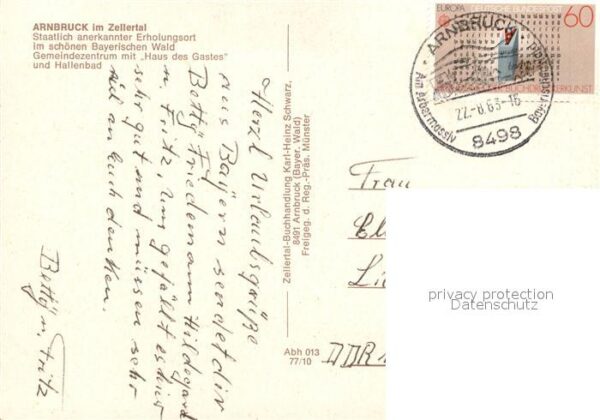 ARNBRUCK im Zellertal
Staatlich anerkannter Erholungsort
im schönen Bayerischen Wald
Gemeindezentrum mit „Haus des Gastes"
und Hallenbad
Herzl Urlaubsgrüße
aus Bayern sendet dir
Betty Friedemann Hildegard
u. Fritz, uns gefällt es hier
sehr gut und müssen sehr
viel an Euch denken.
Betty u. Fritz
Zellertal-Buchhandlung Karl-Heinz Schwarz,
8491 Arnbruck (Bayer. Wald)
Freigeg. d. Reg.-Präs. Münster
Abh 013
77/10
EUROPA DEUTSCHE BUNDESPOST
60
BUCHDRUCKERKUNST
ARNBRUCK
Am Arbermassiv
22.-8.83-16
8498
Frau
DDR
privacy protection
Datenschutz